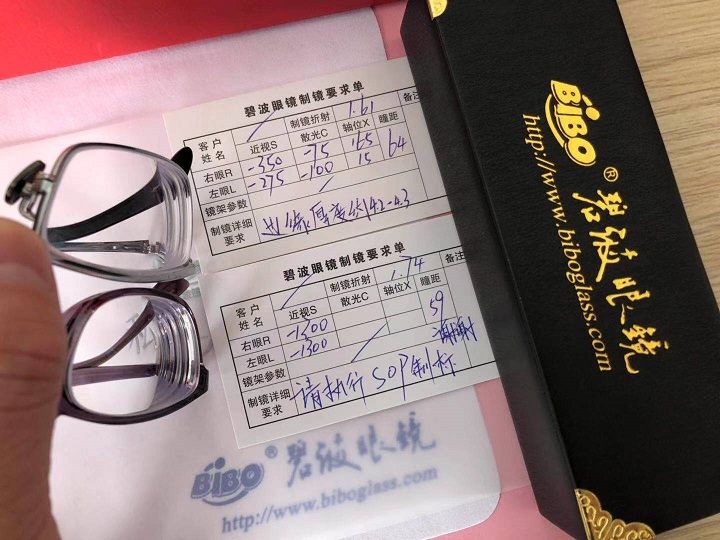 碧波眼镜制镜要求单
客户姓名 近视S 制镜折射 1.61 散光C 轴位X 瞳距 备注
右眼R -350 -75 165 64
左眼L -275 -100 15
镜架参数
制镜详细要求 边缘厚度约4.2-4.3
碧波眼镜制镜要求单
客户姓名 近视S 制镜折射 1.74 散光C 轴位X 瞳距 备注
右眼R -1300 59
左眼L -1300
镜架参数
制镜详细要求 请执行SOP制标 谢谢
BiBO® 碧波眼镜
http://www.biboglass.com
BiBO® 碧波眼镜
http://www.biboglass.com